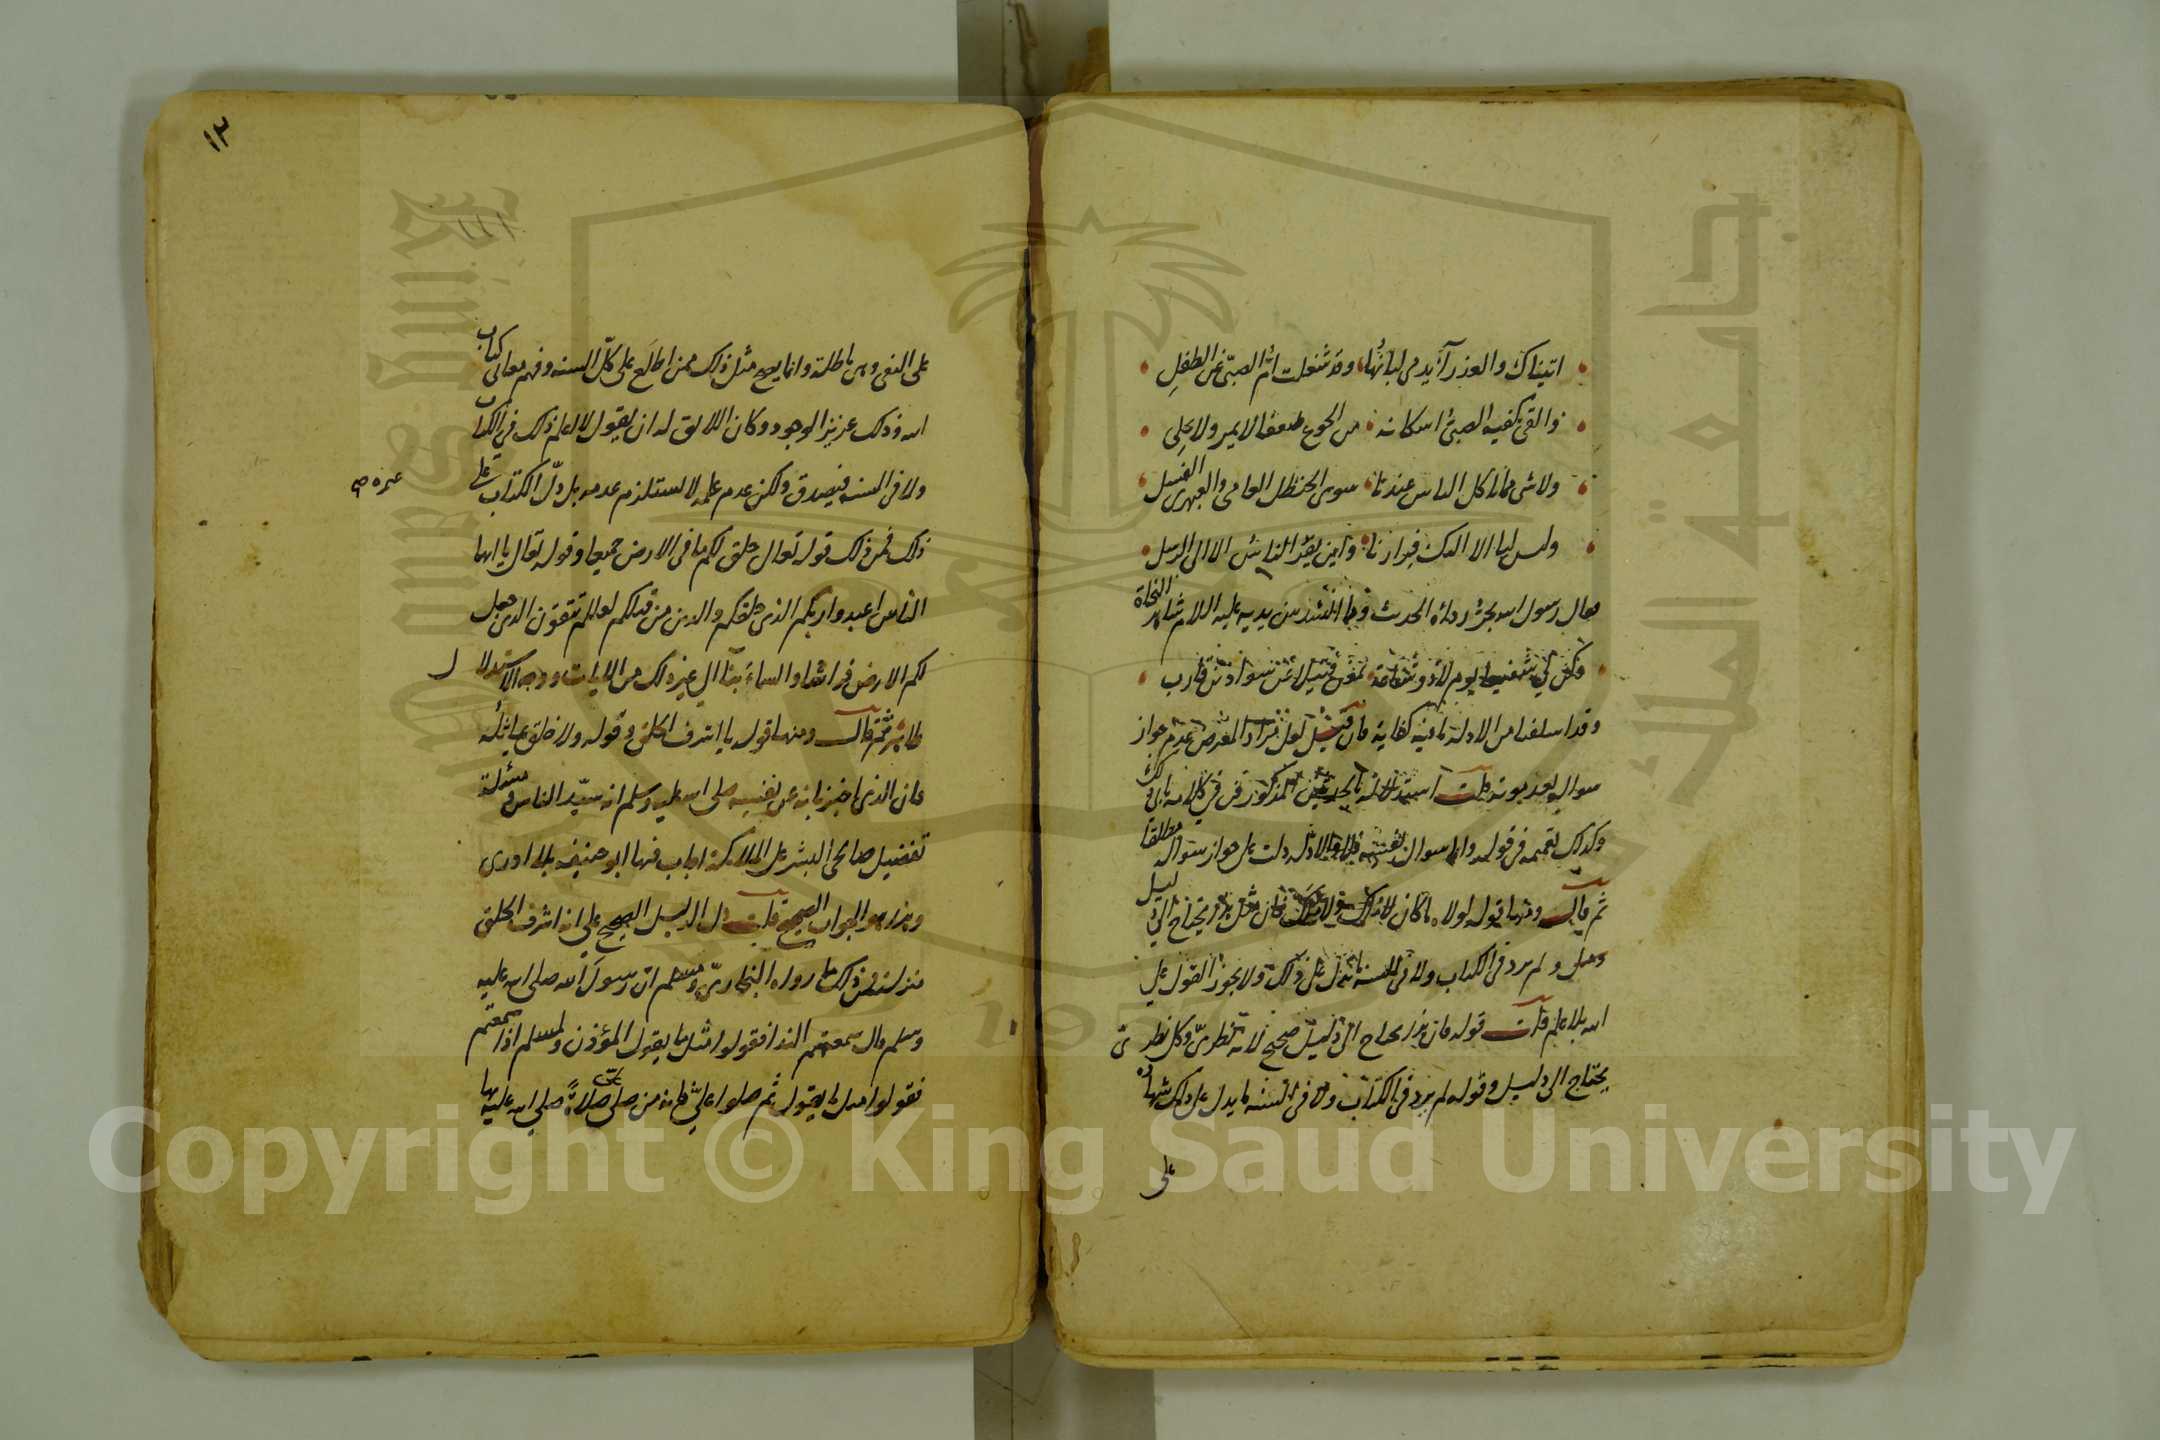 اتيناك والعذرآ يدمى لبانها وقد شغلت ام الصبي عن الطفل
والقى بكفيه الصبي استكانة من الجوع ضعفا لا يمر ولا يحلى
ولا شى مما ناكل الناس عندنا سوى الحنظل العامى والعهر الفسل
وليس لنا الا اليك فرارنا واين يفر الناس الا الى الرسل
فقام رسول الله يجر رداه الحديث وما انشد بين يديه عليه السلام شاهد النجاة
وكن لي شفيعا يوم لا ذو شفاعة بمغن فتيلا عن سواد بن قارب
وقد اسلفنا من الادلة ما فيه كفاية فان قيل لعل مراد المعترض عدم جواز
سواله بعد موته قلت استدلاله بالحديثين المذكورين في كلامه يابى ذلك
وكذلك تعميمه في قوله واما سوال نفسه فلا والادلة دلت على جواز سواله مطلقا
ثم قال ومنها قوله لولاه ما كان لا فلك ولا ملك فان مثل هذا يحتاج الى دليل
ولم يرد في الكتاب ولا في السنة ما يدل على ذلك ولا يجوز القول على
الله بلا علم قلت قوله فان هذا يحتاج الى دليل صحيح لانه نظرى وكل نظرى
يحتاج الى دليل وقوله لم يرد في الكتاب ولا في السنة ما يدل على ذلك شهادة
على
١٣
على النفى وهى باطلة وانما يصح مثل ذلك ممن اطلع على كل السنه وفهم معانى كتاب
الله وذلك عزيز الوجود وكان اللائق له ان يقول لا اعلم ذلك في الكتاب
ولا في السنه فيصدق ولكن عدم علمه لا يستلزم عدمه بل دل الكتاب على
ذلك فمن ذلك قوله تعالى خلق لكم ما في الارض جميعا وقوله تعالى يا ايها
الناس اعبدوا ربكم الذى خلقكم والذين من قبلكم لعلكم تتقون الذى جعل
لكم الارض فراشا والسماء بناآ الى غير ذلك من الايات ووجه الاستدلال
ظاهر ثم قال ومنها قوله يا اشرف الخلق وقوله ولا خلق يماثله
فان الذى اخبرنا به عن نفسه صلى الله عليه وسلم انه سيد الناس ومسئلة
تفضيل صالحى البشر على الملائكة اجاب فيها ابو حنيفه بلا ادرى
وهذا هو الجواب الصحيح قلت دل الدليل الصحيح على انه اشرف الخلق
منزلة فمن ذلك ما رواه البخاري ومسلم ان رسول الله صلى الله عليه
وسلم قال سمعتم الندا فقولوا مثل ما يقول المؤذن ولمسلم اذا سمعتم
فقولوا مثل ما يقول ثم صلوا على فانه من صلى على صلاة صلى الله عليه بها
Copyright © King Saud University
King Saud University
جامعة الملك سعود
1957